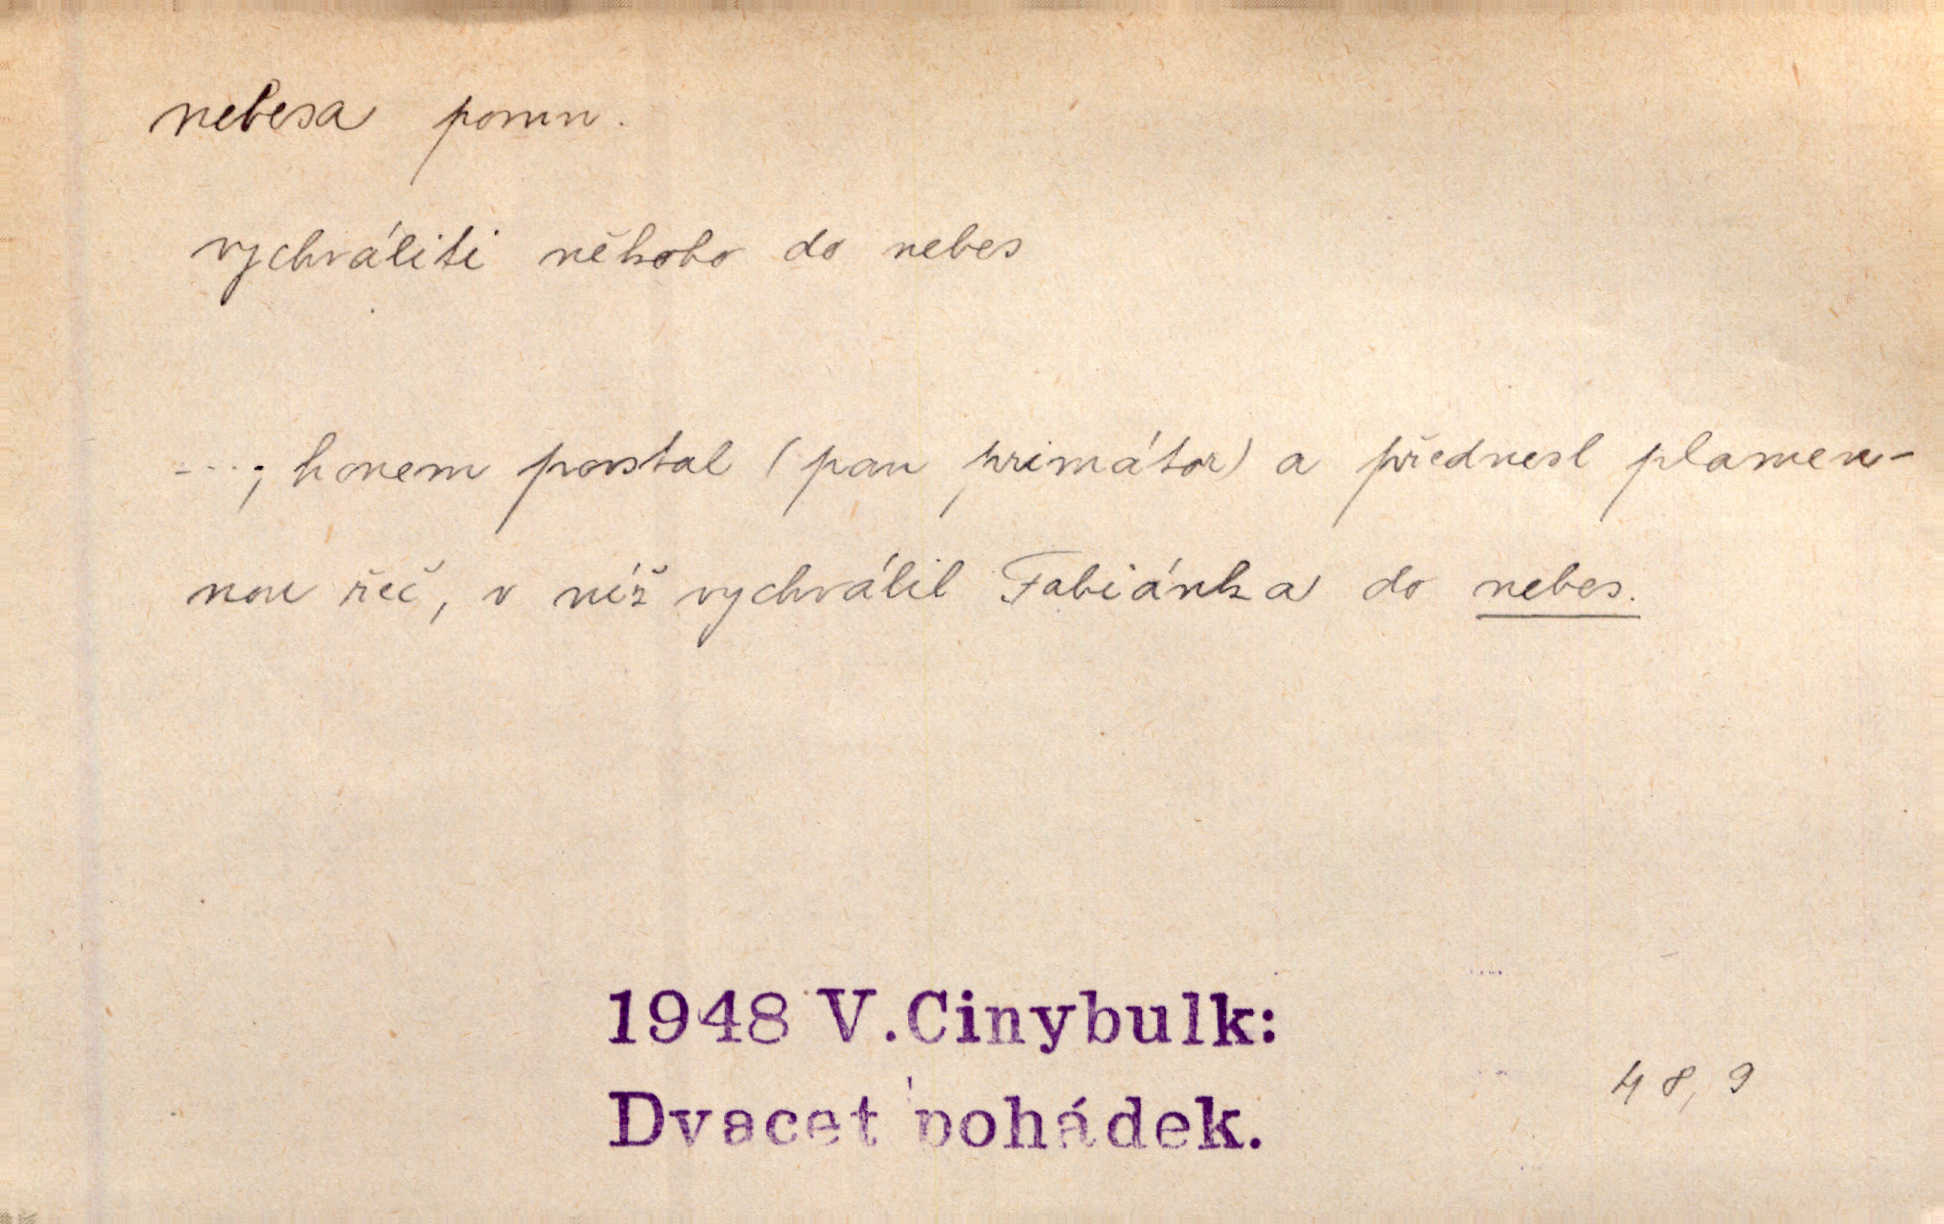 nebesa pomn.
vychváliti někoho do nebes
....; honem povstal (pan primátor) a přednesl plamen-
nou řeč, v níž vychválil Fabiánka do nebes.
1948 V.Cinybulk:
Dvacet pohádek.
48, 9